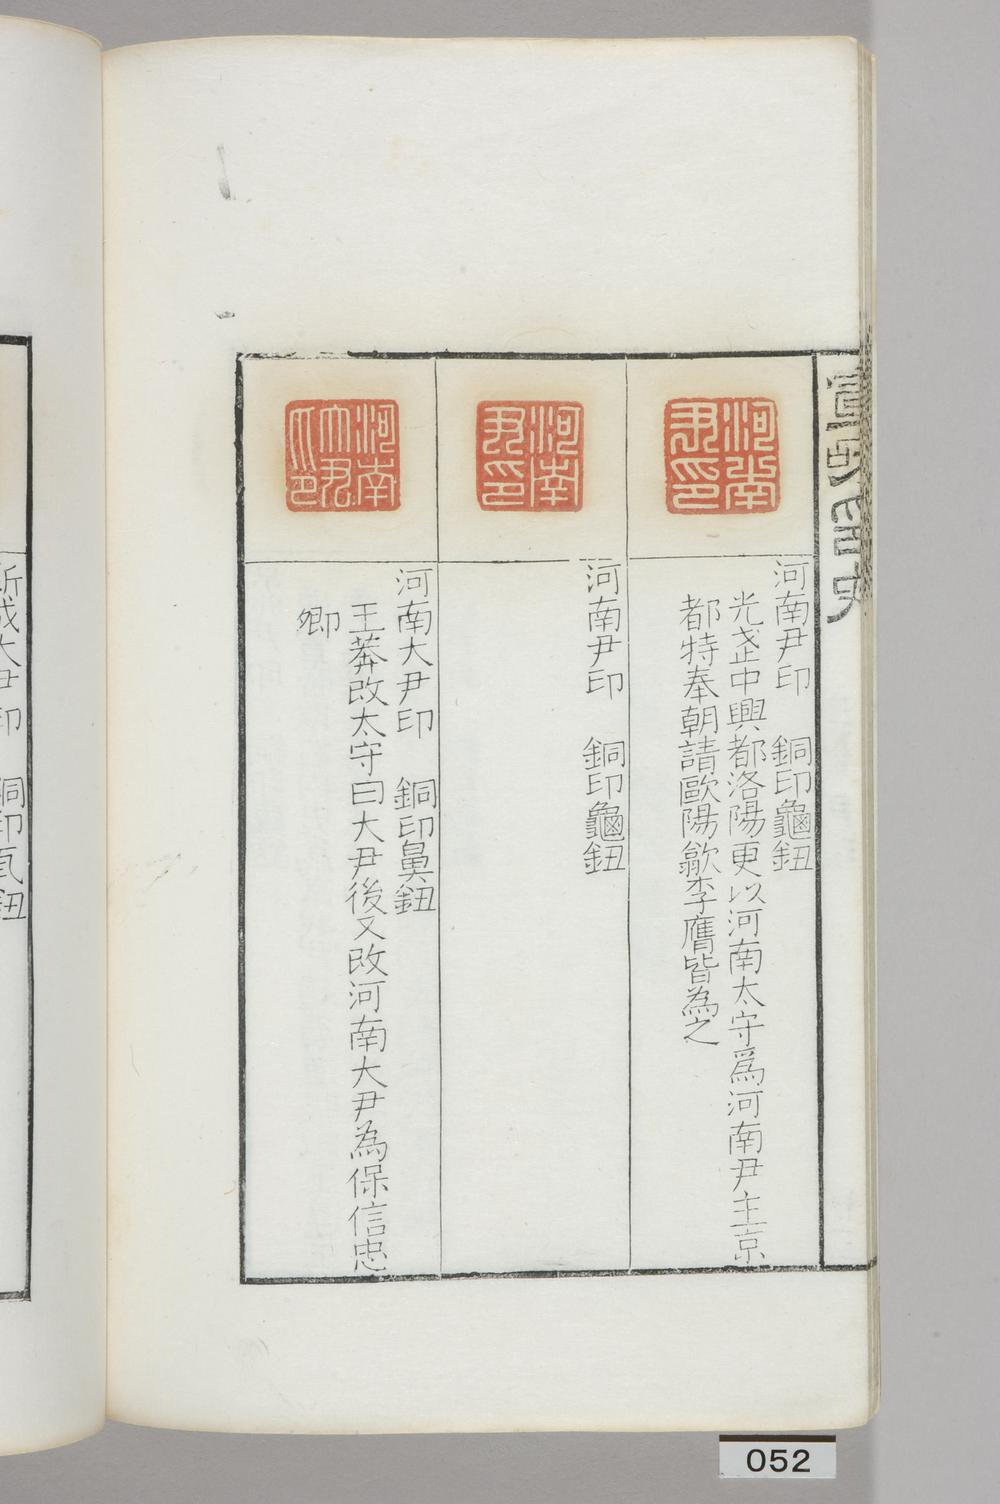 宣和印史
河南尹印
河南尹印　銅印龜鈕
光武中興都洛陽更以河南太守爲河南尹主京
都特奉朝請歐陽歙李膺皆為之
河南尹印
河南尹印　銅印龜鈕
河南大尹印　銅印鼻鈕
王莽改太守曰大尹後又改河南大尹為保信忠
卿
新成大尹印　銅印瓦鈕
052